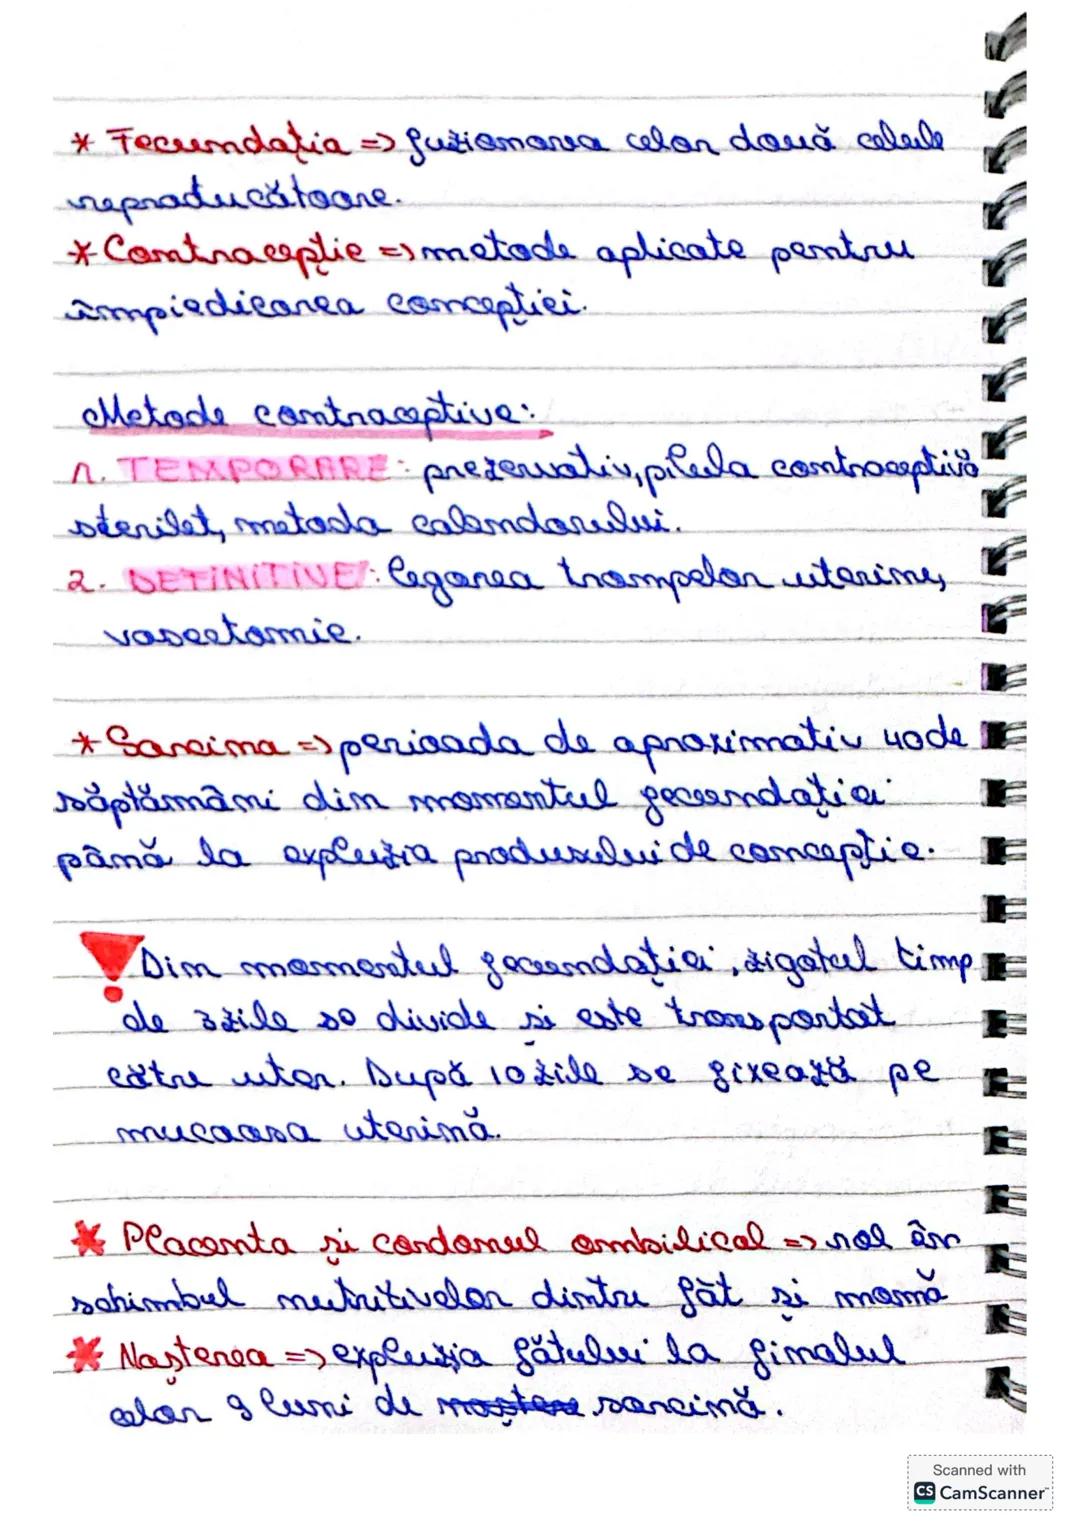 * Fecundația => fuzionarea celor două celule
reproducătoare.
* Contracepție => metode aplicate pentru
împiedicarea concepției.
Metode contraceptive:
1. TEMPORARE: prezervativ, pilula contraceptivă
sterilet, metoda calendarului.
2. DEFINITIVE: legarea trompelor uterine,
vasectomie.
* Sarcina => perioada de aproximativ 40 de
săptămâni din momentul fecundației
până la expluzia produsului de concepție.
Din momentul fecundației, zigotul timp
de 3 zile se divide și este transportat
către uter. După 10 zile se fixează pe
mucoasa uterină.
* Placenta și cordonul ombilical => rol în
schimbul nutritivelor dintre făt și mamă
* Nașterea => expluzia fătului la finalul
celor 9 luni de naștere sarcină.
Scanned with
CS CamScanner